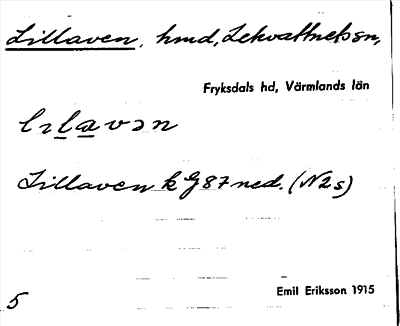 Lillaven, hmd, Lekvattnets sn,
Fryksdals hd, Värmlands län
Lillaven k G87 ned. (N2s)
Emil Eriksson 1915
5